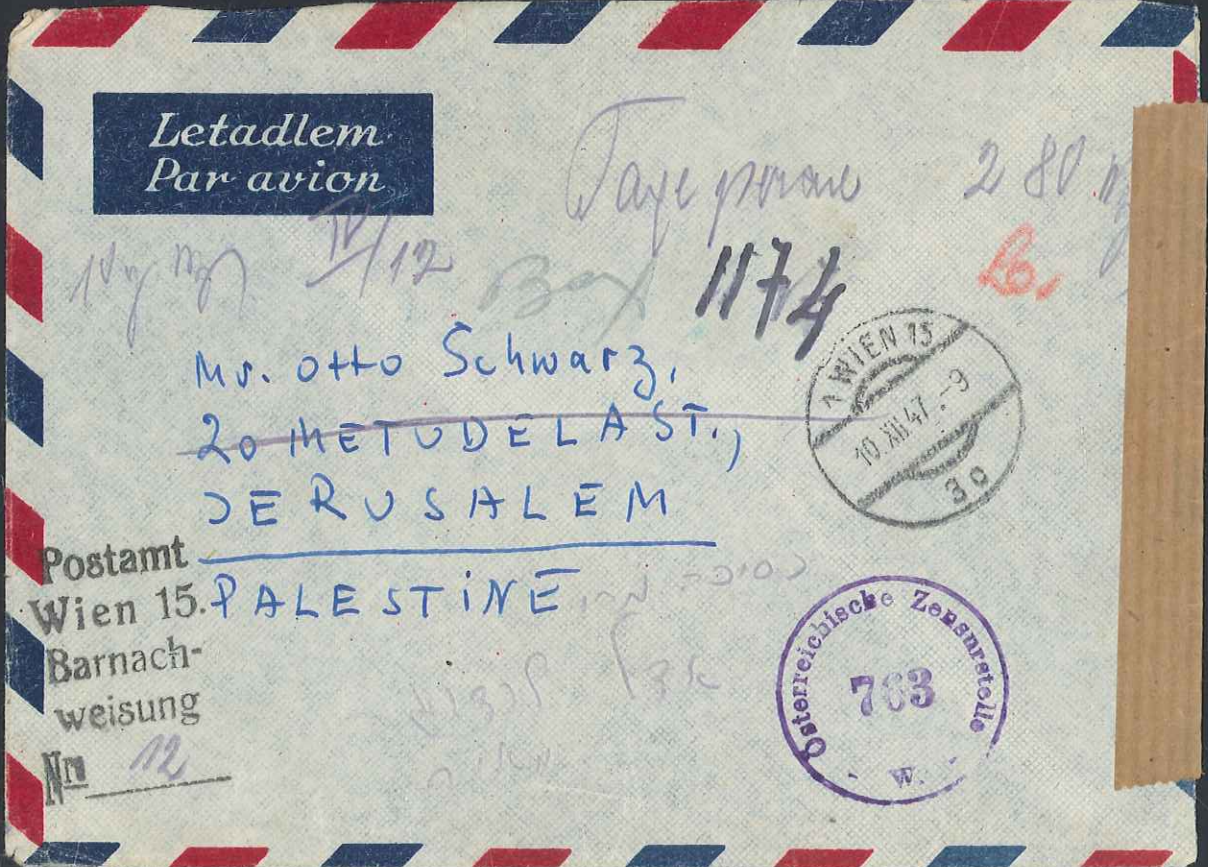 Letadlem
Par avion
2 80
IV/12
Box 1174
Mr. Otto Schwarz,
20 METUDELA ST.,
JERUSALEM
PALESTINE
1 WIEN 15
10.XII.47.-9
3c
Postamt
Wien 15.
Barnach-
weisung
Nr. 12
Österreichische Zensurstelle
763
- W. -